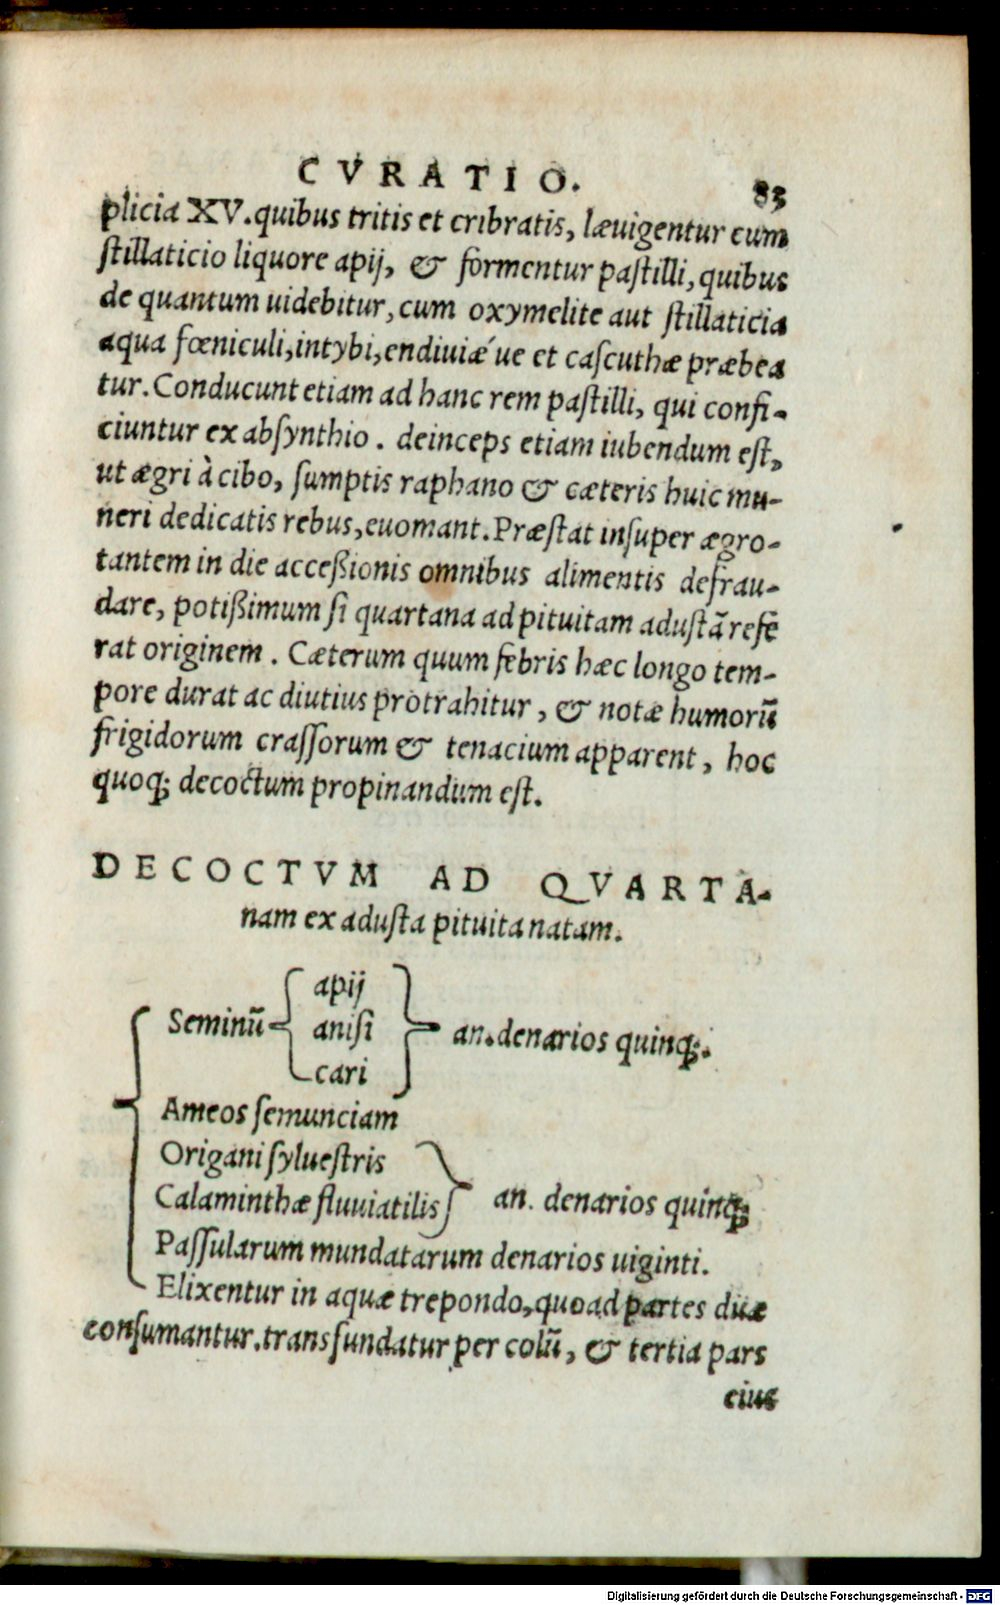 CVRATIO. 83
plicia XV. quibus tritis et cribratis, læuigentur cum
ſtillaticio liquore apij, & formentur paſtilli, quibus
de quantum uidebitur, cum oxymelite aut ſtillaticia
aqua fœniculi, intybi, endiuiæ´ue et caſcuthæ præbea
tur. Conducunt etiam ad hanc rem paſtilli, qui confi-
ciuntur ex abſynthio. deinceps etiam iubendum eſt,
ut ægri à cibo, ſumptis raphano & cæteris huic mu-
neri dedicatis rebus, euomant. Præſtat inſuper ægro-
tantem in die acceßionis omnibus alimentis defrau-
dare, potißimum ſi quartana ad pituitam aduſtã refe
rat originem. Cæterum quum febris hæc longo tem-
pore durat ac diutius protrahitur, & notæ humorũ
frigidorum craſſorum & tenacium apparent, hoc
quoq; decoctum propinandum eſt.
DECOCTVM AD QVARTA-
nam ex aduſta pituita natam.
apij
Seminũ aniſi an. denarios quinq;.
cari
Ameos ſemunciam
Origani ſylueſtris
Calaminthæ fluuiatilis an. denarios quinq;
Paſſularum mundatarum denarios uiginti.
Elixentur in aquæ trepondo, quoad partes duæ
conſumantur. transſundatur per colũ, & tertia pars
eius
Digitalisierung gefördert durch die Deutsche Forschungsgemeinschaft - DFG